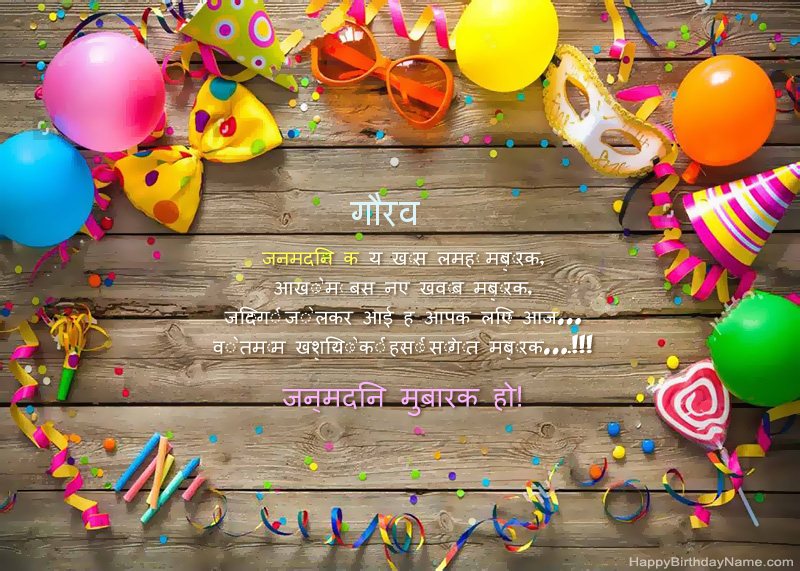 गौरव
जनमदनि क य खास लमह मबारक,
आखोम बस नए खवाब मबारक,
जदिगी जो लेकर आई ह आपक लएि आज...
वो तमाम खशयिो की हसी सोगात मबारक...!!!
जन्मदनि मुबारक हो!
HappyBirthdayName.com